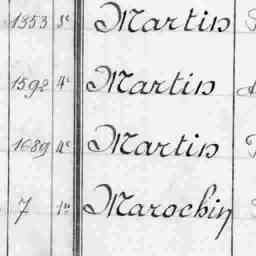 1353 3e Martin
1592 4e Martin
1689 4e Martin
7 1re Marochin